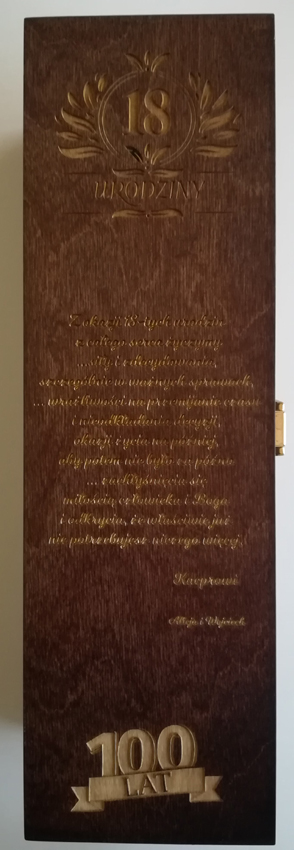 18
URODZINY
Z okazji 18-tych urodzin
z całego serca życzymy
...siły i zdecydowania,
szczególnie w ważnych sprawach,
... wrażliwości na przemijanie czasu
i nieodkładania decyzji,
okazji, życia na później,
aby potem nie było za późno
... zachłyśnięcia się
miłością człowieka i Boga
i odkrycia, że właściwie już
nie potrzebujesz niczego więcej!
Kacprowi
Alicja i Wojciech
100
LAT